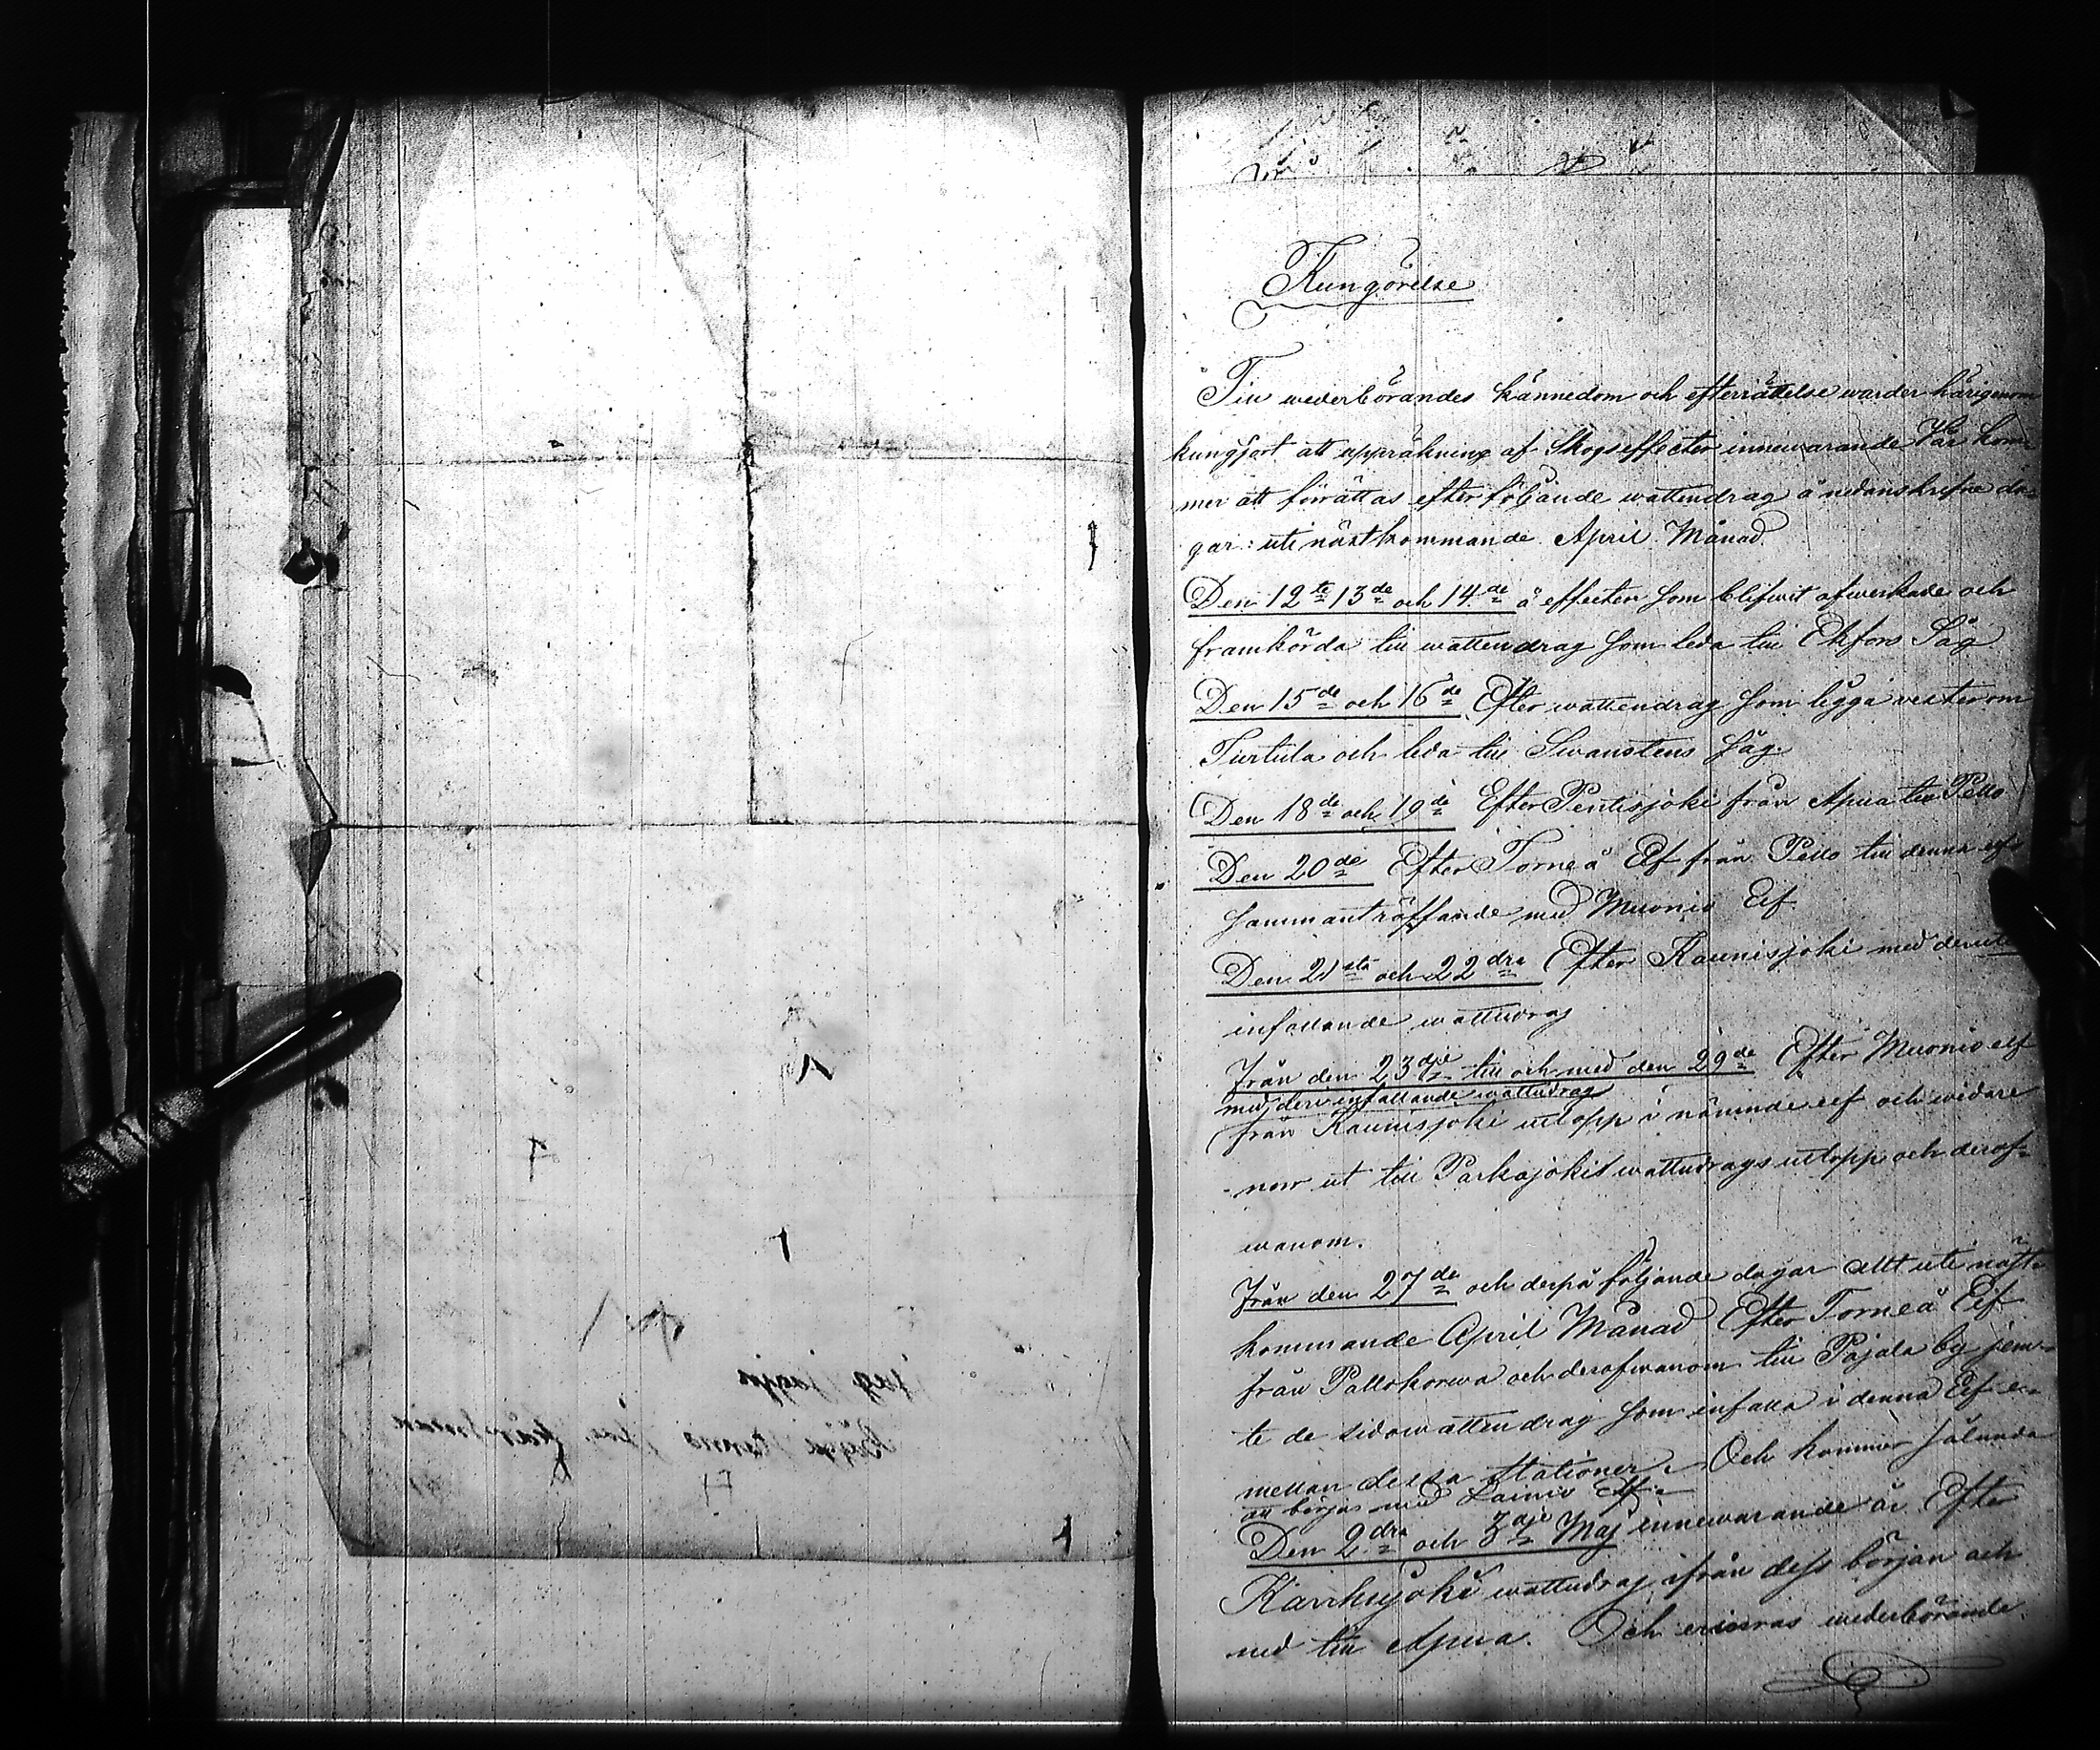 Kungörelse
Till wederbörandes kännedom och efterrättelse warder härigenom
kungjort att uppräkning af Skogseffecter innewarande Vår kom
mer att förrättas efter följande wattendrag å nedanskrefne da-
gar: uti nästkommande April Månad.
Den 12te 13de och 14de å effecter som blifwit afwerkade och
framkörda till wattendrag som leda till Ekfors Såg
Den 15de och 16de Efter wattendrag som ligga vester om
Turtula och leda till Swanstens Såg.
Den 18de och 19de Efter Pentisjoki från Apua till Pello
Den 20de Efter Torneå Elf från Pello till denna elfs
sammanträffande med Muonio Elf.
Den 21sta och 22dra Efter Kaunisjoki med deruti
infallande wattudrag
Från den 23dje till och med den 29de Efter Muonio elf
med deri infallande wattudrag
från Kaunisjoki utlopp i nämnde elf och widare
norr ut till Parkajokis wattudrags utlopp och derof-
wanom.
Från den 27de och derpå följande dagar allt uti näst-
kommande April Månad Efter Torneå Elf
från Pallokorwa och derofwanom till Pajala by jem-
te de sidowattendrag som infalla i denna Elf e-
mellan dessa stationer. Och kommer sålunda
att börjas med Lainio Elf.
Den 2dra och 3dje Maj innewarande år Efter
Karhujoki wattudrag ifrån dess början och
ned till Apua. Och erinras wederbörande